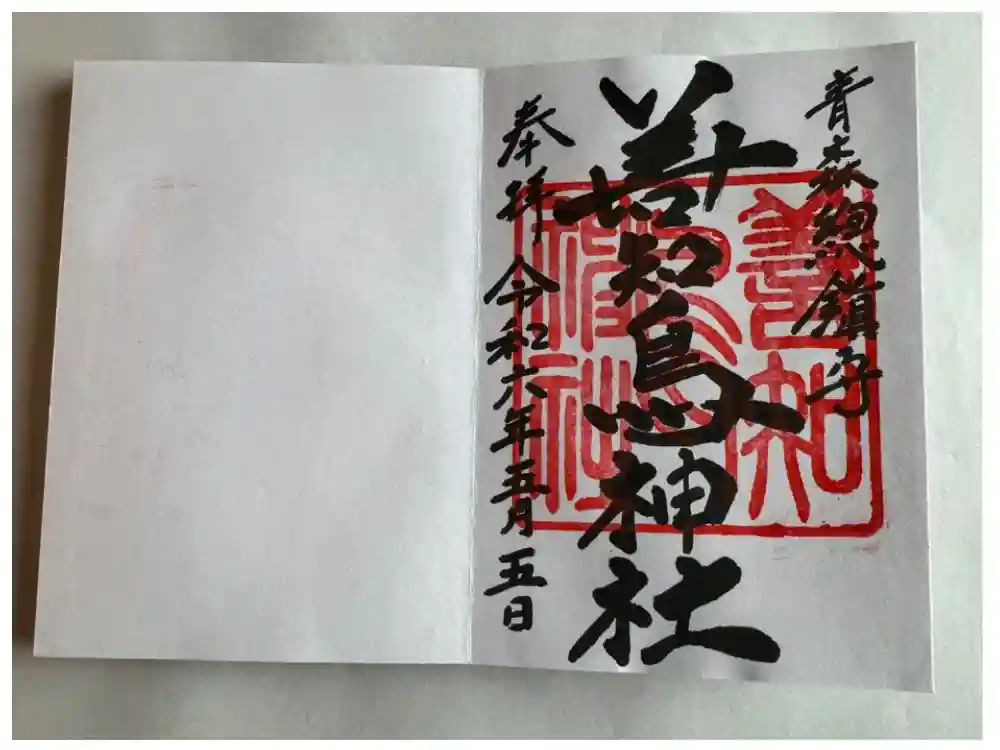 青森總鎮守
善知鳥神社
奉拝 令和六年五月五日
善知
神社